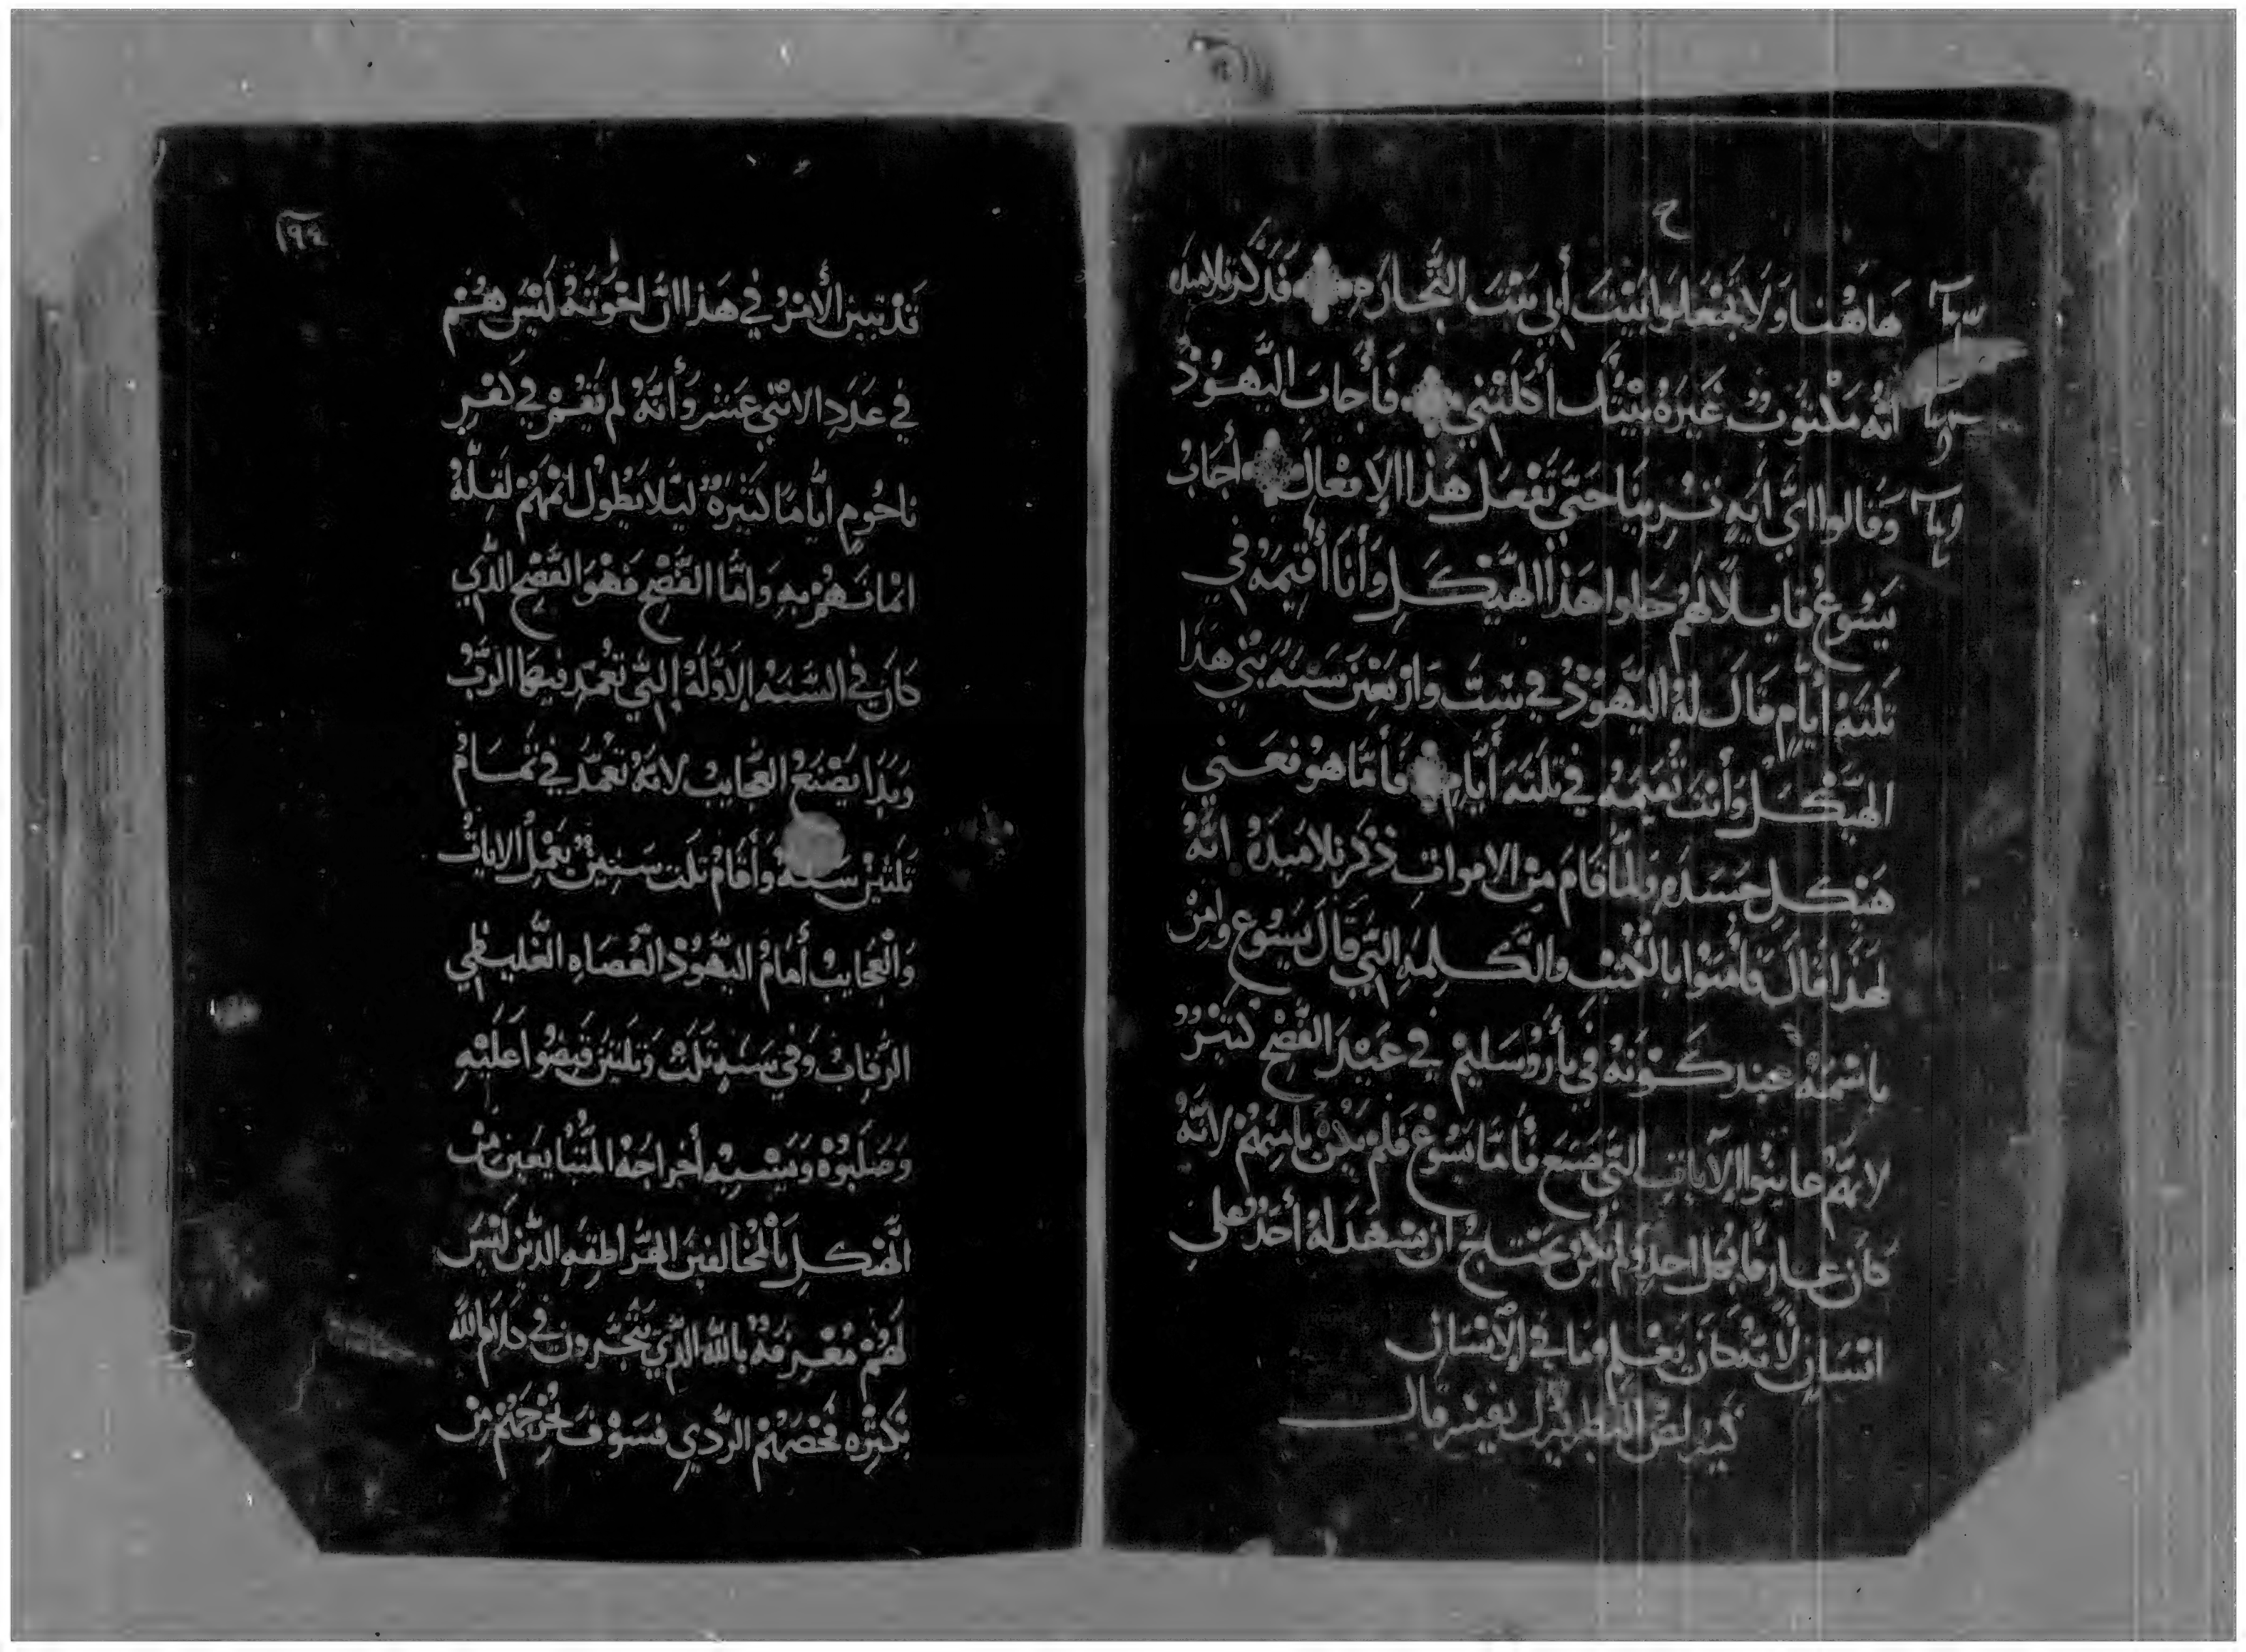 ح
هَاهُنا وَلَا تَجْعَلوا بَيْتَ أَبي بَيْتَ التِّجارَه فَذَكَر تلاميذه
انَّه مَكتوبٌ غَيرَةُ بَيْتِك أكَلَتْني فَأَجابَ اليَهودُ
وَقالوا ايَّ ايَه تُرِينَا حَتَّي تَفْعَل هَذا الافعال أجابُ
يَسُوعُ قايلًا لهُم حلوا هَذا الهَيْكَلِ وَأَنَا أُقيمَهُ في
تَلتَة أيَّامٍ قَالَ لَهُ اليَهُودُ في سِتَّ وَارْبَعِين سَنَه بُني هَذا
الهَيْكَل وَأَنتَ تُقيمَهُ في تَلتَة أيَّامٍ فَأَمَّا هو فعَني
هَيْكلِ جَسَدَهِ وَلمَّا قَامَ مِن الاموات ذَكَر تلاميدَهُ انَّهُ
لهَذا قالَ وَأمنوا بالكُتب والكلِمَه التي قالَ يَسُوع وامن
باسْمَهُ عِند كَوْنَهُ في يأرُوسَليم في عَيْد الفَصْح كَتيرٌ
لانهُم عاينوا الآيات التي صَنَع فأمَّا يَسُوعُ فلم يكُن يامنهُم لانَّهُ
كان عارِفا بكل احدٍ ولم يكُن يَحتاج ان يَشهَد لهُ أحَدٌ علي
انْسَانٍ لانَّه كان يَعْلم ما في الإنْسَان
كيرلص البطريرك يفسر قال
١٩٤
قَد تبَيَن الأَمْرُ في هَذا انَّ اخْوَتَهُ لَيْسَ هُم
في عَدَدِ الاتني عَشر وَأنَّهُ لم يَقُم في كفْرِ
ناحُوم ايَّامًا كَتيرَةً ليَلا يَطُول اتمهُم لقلَّة
امانَهُمْ بِهِ وَامَّا الفَصْحِ فَهُوَ الفَصْح الَّذي
كانَ في السَّنَه الاوَّلَهُ التي تعُمَد فيهَا الرَبُّ
وَبَدَا يَصْنَعُ العَجَايب لانَّهُ تعُمَّدَ في تَمامُ
تَلَتينْ سَنَهُ وَأَقَامُ تلَت سنينْ يَعْمِل الاياتُ
وَالعَجايبُ أَمَامُ اليَهُودْ العُصَاهِ الغَليظي
الرِقاب وَفي سَنَهِ تَلَت وَتَلتينَ قَبَضُوا عَلَيْهِ
وَصَلَبُوهْ وَيَشبِهُ أخراجَهُ المتبايعين مِنْ
الهَيْكلِ بالمُخالفين الهَراطقَه الذَّينْ لَيْسَ
لَهُمْ مَعْرِفَهْ باللَّه الَّذي يَتجَّرون في كلام الله
بكتِره فَحْصهُمْ الردي فسَوْفَ يُخْرِجهُمْ مِنْ